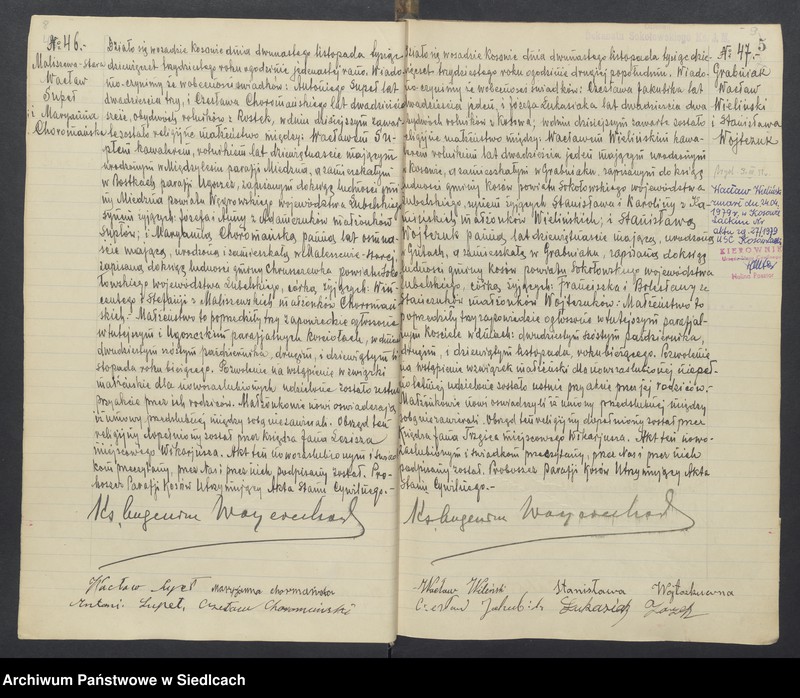 № 46.-
Maliszewa-stara
Wacław
Supeł
i Maryanna
Choromańska
Działo się w osadzie Kosowie dnia dwunastego listopada tysiąc
dziewięćset trzydziestego roku o godzinie jedenastej rano. Wiado-
mo czynimy że w obecności świadków: Antoniego Supeł lat
dwadzieścia trzy, i Czesława Choromańskiego lat dwadzieścia
sześć, obydwóch rolników z Rostek, w dniu dzisiejszym zawar-
te zostało religijne małżeństwo między: Wacławem Su-
płem kawalerem, rolnikiem lat dziewiętnaście mającym
urodzonym w Międzylesiu parafji Miedzna, a zamieszkałym
w Rostkach parafji Ugoszcz, zapisanym do ksiąg ludności gmi-
ny Miedzna powiatu Węgrowskiego województwa Lubelskiego
synem żyjących: Józefa i Anny z Adamczuków małżonków
Supłów; i Maryanną Choromańską panną lat osimna-
ście mającą, urodzoną i zamieszkałą w Maliszewie-Starej
zapisaną do ksiąg ludności gminy Chruszczewka powiatu Soko-
łowskiego województwa Lubelskiego, córką żyjących: Win-
centego i Stefanji z Maliszewskich małżonków Choromań-
skich.- Małżeństwo to poprzedziły trzy zapowiedzie ogłoszone
w tutejszym i Ugoszczkim parafjalnych kościołach, w dniach
dwudziestym szóstym października, drugim, i dziewiątym li-
stopada roku bieżącego. Pozwolenie na wstąpienie w związki
małżeńskie dla nowozaślubionych udzielone zostało ustnie
przy akcie przez ich rodziców. Małżonkowie nowi oświadczają
iż umowy przedślubnej między sobą nie zawierali. Obrzęd ten
religijny dopełniony został przez Księdza Jana
miejscowego Wikarjusza. Akt ten nowozaślubionym i świad-
kom przeczytany, przez Nas i przez nich podpisany został. Pro-
boszcz Parafji Kosów Utrzymujący Akta Stanu Cywilnego.-
Ks. Eugeniusz
Wacław Supeł Maryanna Chormańska
Antoni Supeł, Czesław Choromański
5
№ 47.-
Grabniak
Wacław
Wieliński
i Stanisława
Wojtczuk
Wacław Wieliński
zmarł dn. 24.04.
1979 r. w Kosowie
Lackim Nr
aktu zg. 27/1979
USC Kosów Lacki
KIEROWNIK
Działo się w osadzie Kosowie dnia dwunastego listopada tysiąc dzie-
więćset trzydziestego roku o godzinie drugiej popołudniu. Wiado-
mo czynimy że w obecności świadków: Czesława Jakubika lat
dwadzieścia jeden, i Józefa Łukasiaka lat dwadzieścia dwa
obydwóch rolników z Kosowa; w dniu dzisiejszym zawarte zostało
religijne małżeństwo między: Wacławem Wielińskim kawa-
lerem rolnikiem lat dwadzieścia jeden mającym urodzonym
w Kosowie, a zamieszkałym w Grabniaku, zapisanym do ksiąg
ludności gminy Kosów powiatu Sokołowskiego województwa
Lubelskiego, synem żyjących Stanisława i Karoliny z Ka-
małżonków Wielińskich; i Stanisławą
Wojtczuk panną lat dziewiętnaście mającą, urodzoną
w Grzybach, a zamieszkałą w Grabniaku, zapisaną do ksiąg
ludności gminy Kosów powiatu Sokołowskiego województwa
Lubelskiego, córką żyjących: Franciszka i Bolesławy ze
małżonków Wojtczuków. Małżeństwo to
poprzedziły trzy zapowiedzie ogłoszone w tutejszym parafjal-
nym Kościele w dniach: dwudziestym szóstym października,
drugim, i dziewiątym listopada, roku bieżącego. Pozwolenie
na wstąpienie w związek małżeński dla nowozaślubionej niepeł-
noletniej udzielone zostało ustnie przy akcie przez jej rodziców.-
Małżonkowie nowi oświadczyli iż umowy przedślubnej między
sobą nie zawierali. Obrzęd ten religijny dopełniony został przez
Księdza Jana miejscowego Wikarjusza. Akt ten nowo-
zaślubionym i świadkom przeczytany, przez Nas i przez nich
podpisany został. Proboszcz Parafji Kosów Utrzymujący Akta
Stanu Cywilnego.-
Ks. Eugeniusz
Wacław Wieliński Stanisława Wojtczukówna
Czesław Jakubik Łukasiak Józef
Archiwum Państwowe w Siedlcach